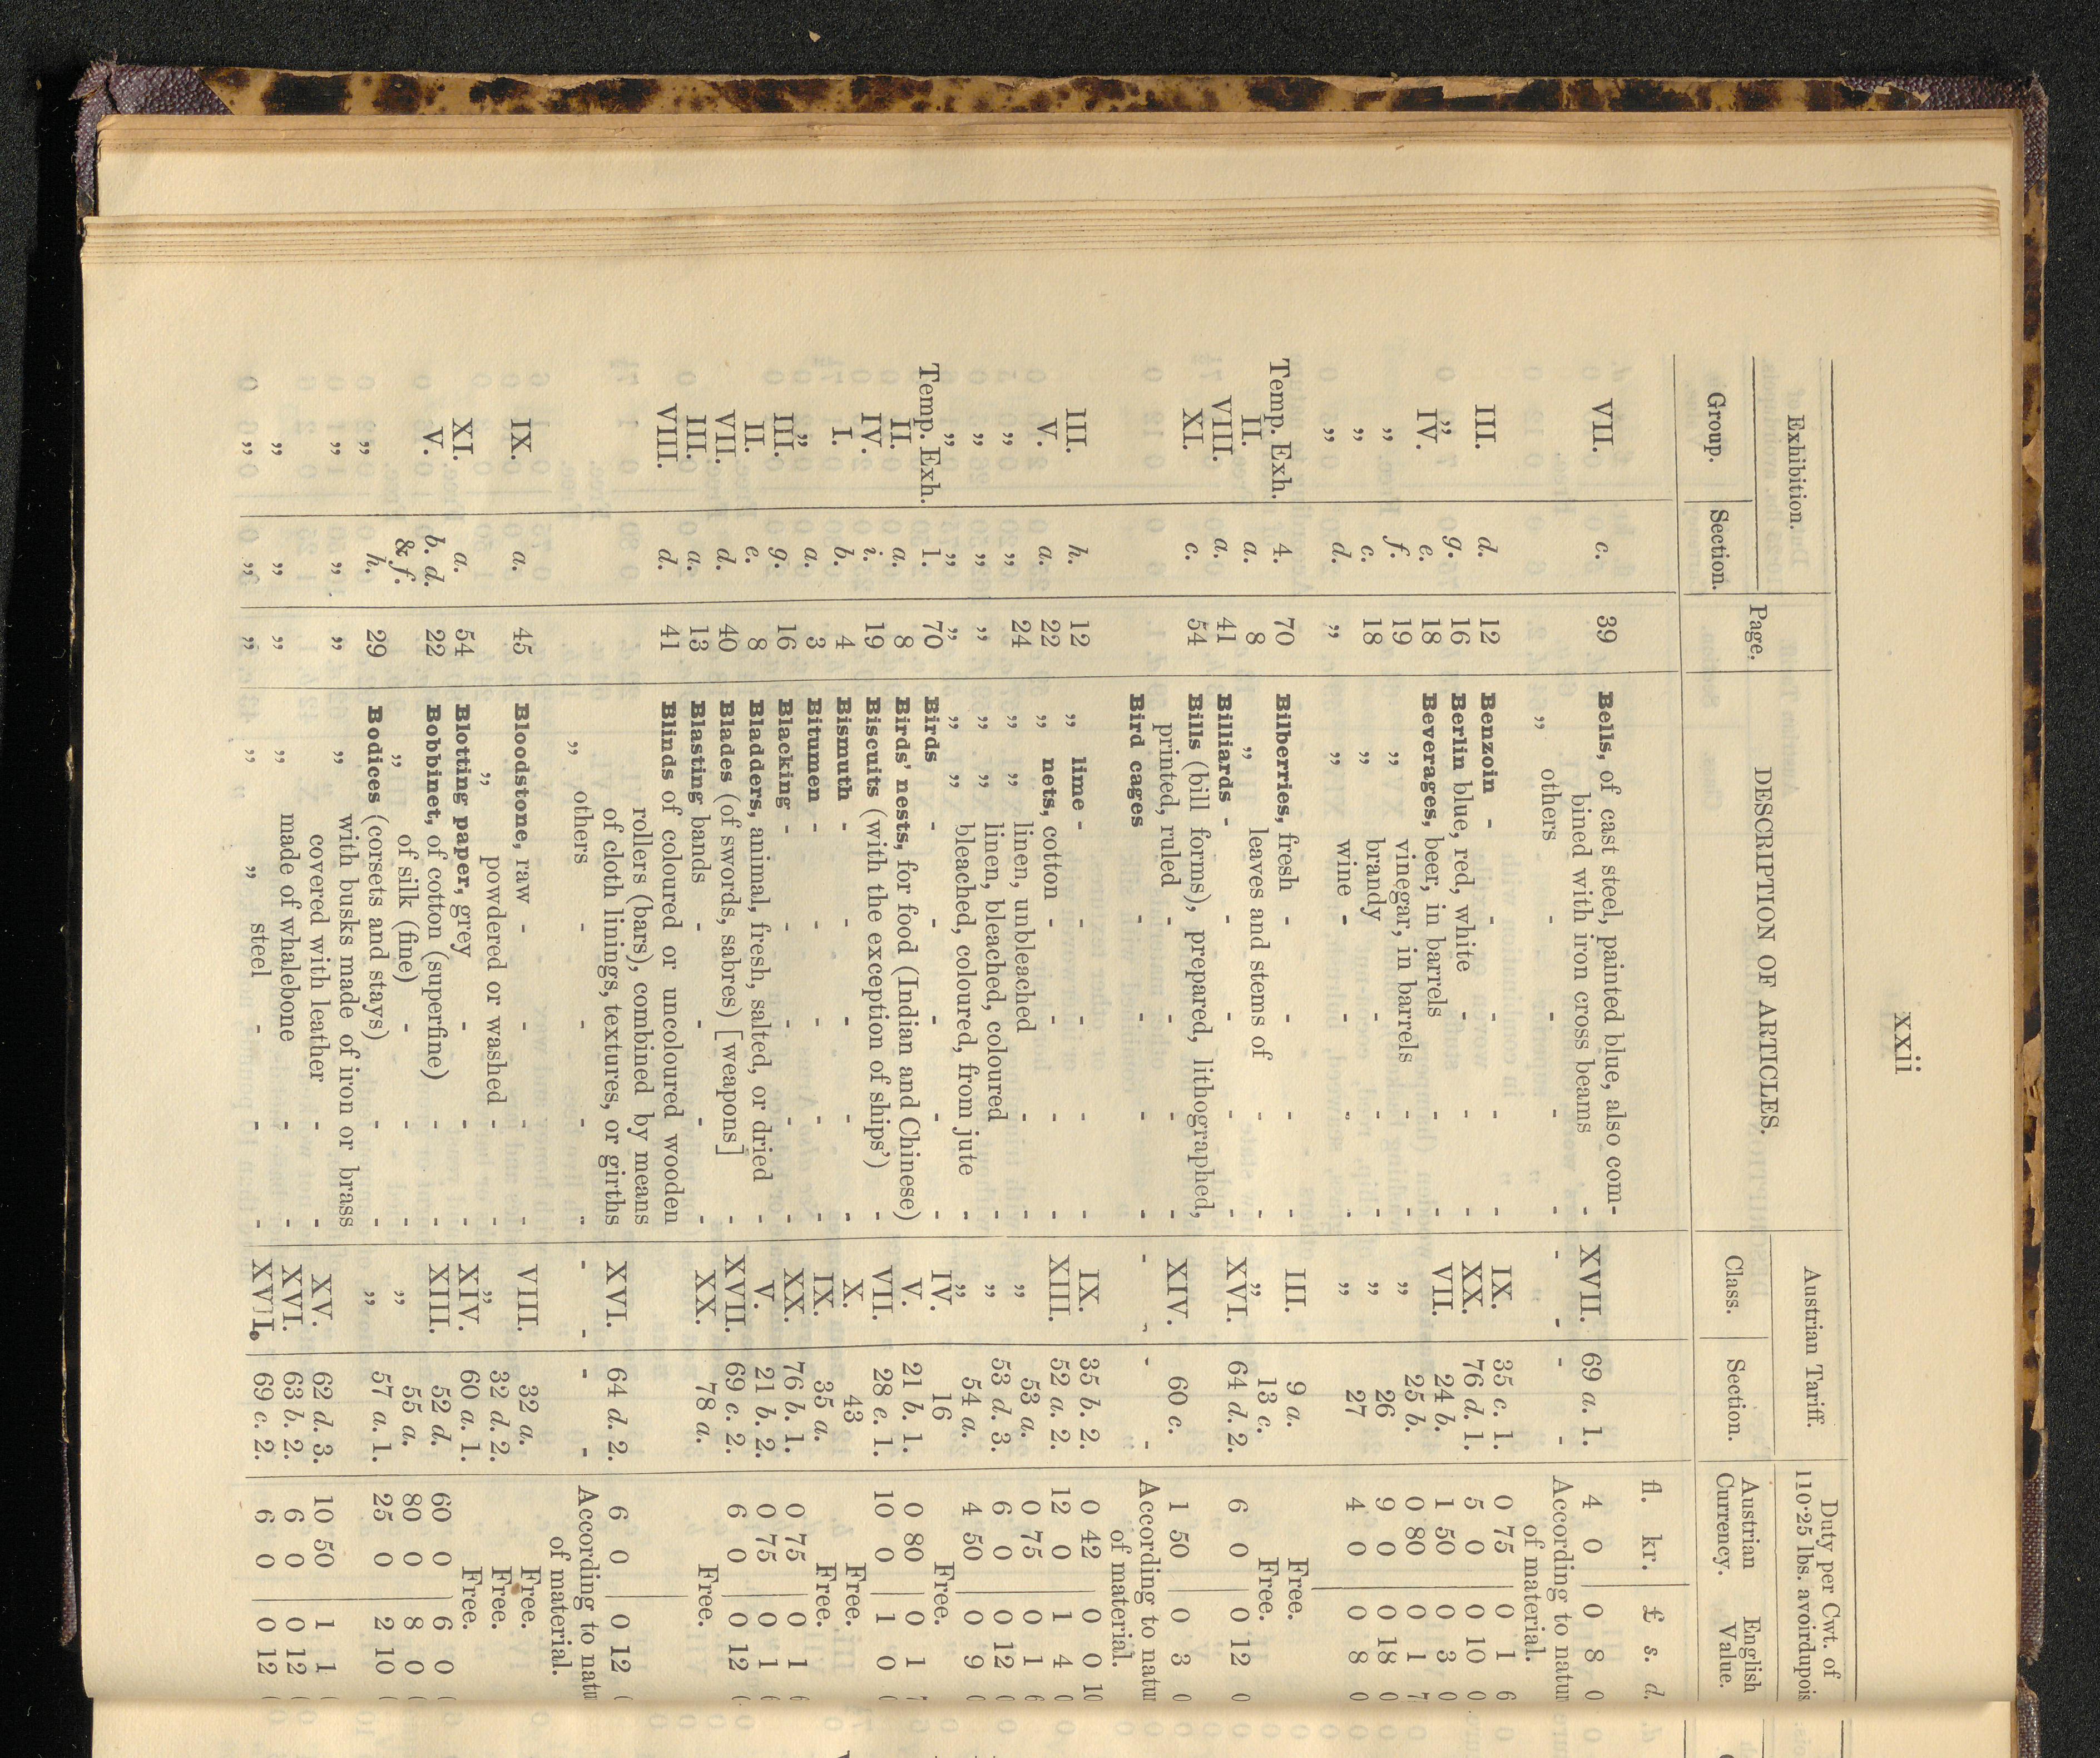 xxii
Exhibition. Page. DESCRIPTION OF ARTICLES. Austrian Tariff. Duty per Cwt. of 110·25 lbs. avoirdupois
Group. Section. Class. Section. Austrian Currency. English Value.
fl. kr. £ s. d.
VII. c. 39 Bells, of cast steel, painted blue, also com-
bined with iron cross beams - XVII. 69 a. 1. 4 0 0 8 0
„ others - - - - - - - - According to natur
of material.
III. d. 12 Benzoin - - - - - IX. 35 c. 1. 0 75 0 1 6
„ g. 16 Berlin blue, red, white - - - XX. 76 d. 1. 5 0 0 10 0
IV. e. 18 Beverages, beer, in barrels - - VII. 24 b. 1 50 0 3 0
„ f. 19 „ vinegar, in barrels - - „ 25 b. 0 80 0 1 7
„ c. 18 „ brandy - - - „ 26 9 0 0 18 0
„ d. „ „ wine - - - - „ 27 4 0 0 8 0
Temp. Exh. 4. 70 Bilberries, fresh - - - - III. 9 a. Free.
II. a. 8 „ leaves and stems of - - „ 13 c. Free.
VIII. a. 41 Billiards - - - - - XVI. 64 d. 2. 6 0 0 12 0
XI. c. 54 Bills (bill forms), prepared, lithographed,
printed, ruled - - - - XIV. 60 c. 1 50 0 3 0
Bird cages - - - - - - - - According to natur
of material.
III. h. 12 „ lime - - - - - IX. 35 b. 2. 0 42 0 0 10
V. a. 22 „ nets, cotton - - - - XIII. 52 a. 2. 12 0 1 4 0
„ „ 24 „ „ linen, unbleached - - „ 53 a. 0 75 0 1 6
„ „ „ „ „ linen, bleached, coloured - „ 53 d. 3. 6 0 0 12 0
„ „ „ „ „ bleached, coloured, from jute - „ 54 a. 4 50 0 9 0
Temp. Exh. 1. 70 Birds - - - - - IV. 16 Free.
II. a. 8 Birds' nests, for food (Indian and Chinese) V. 21 b. 1. 0 80 0 1 7
IV. i. 19 Biscuits (with the exception of ships') - VII. 28 c. 1. 10 0 1 0 0
I. b. 4 Bismuth - - - - - X. 43 Free.
„ a. 3 Bitumen - - - - - IX. 35 a. Free.
III. g. 16 Blacking - - - - - XX. 76 b. 1. 0 75 0 1 6
II. e. 8 Bladders, animal, fresh, salted, or dried - V. 21 b. 2. 0 75 0 1 6
VII. d. 40 Blades (of swords, sabres) [weapons] - XVII. 69 c. 2. 6 0 0 12
III. a. 13 Blasting bands - - - - XX. 78 a. Free.
VIII. d. 41 Blinds of coloured or uncoloured wooden
rollers (bars), combined by means
of cloth linings, textures, or girths XVI. 64 d. 2. 6 0 0 12
„ others - - - - - - - - According to natu
of material.
IX. a. 45 Bloodstone, raw - - - - VIII. 32 a. Free.
„ powdered or washed - - „ 32 d. 2. Free.
XI. a. 54 Blotting paper, grey - - - XIV. 60 a. 1. Free.
V. b. d. 22 Bobbinet, of cotton (superfine) - - XIII. 52 d. 60 0 6 0
& f. „ of silk (fine) - - - „ 55 a. 80 0 8 0
„ h. 29 Bodices (corsets and stays) - - „ 57 a. 1. 25 0 2 10
„ „ „ „ with busks made of iron or brass
covered with leather - - XV. 62 d. 3. 10 50 1 1
„ „ „ „ made of whalebone - - XVI. 63 b. 2. 6 0 0 12
„ „ „ „ „ steel - - - XVII. 69 c. 2. 6 0 0 12